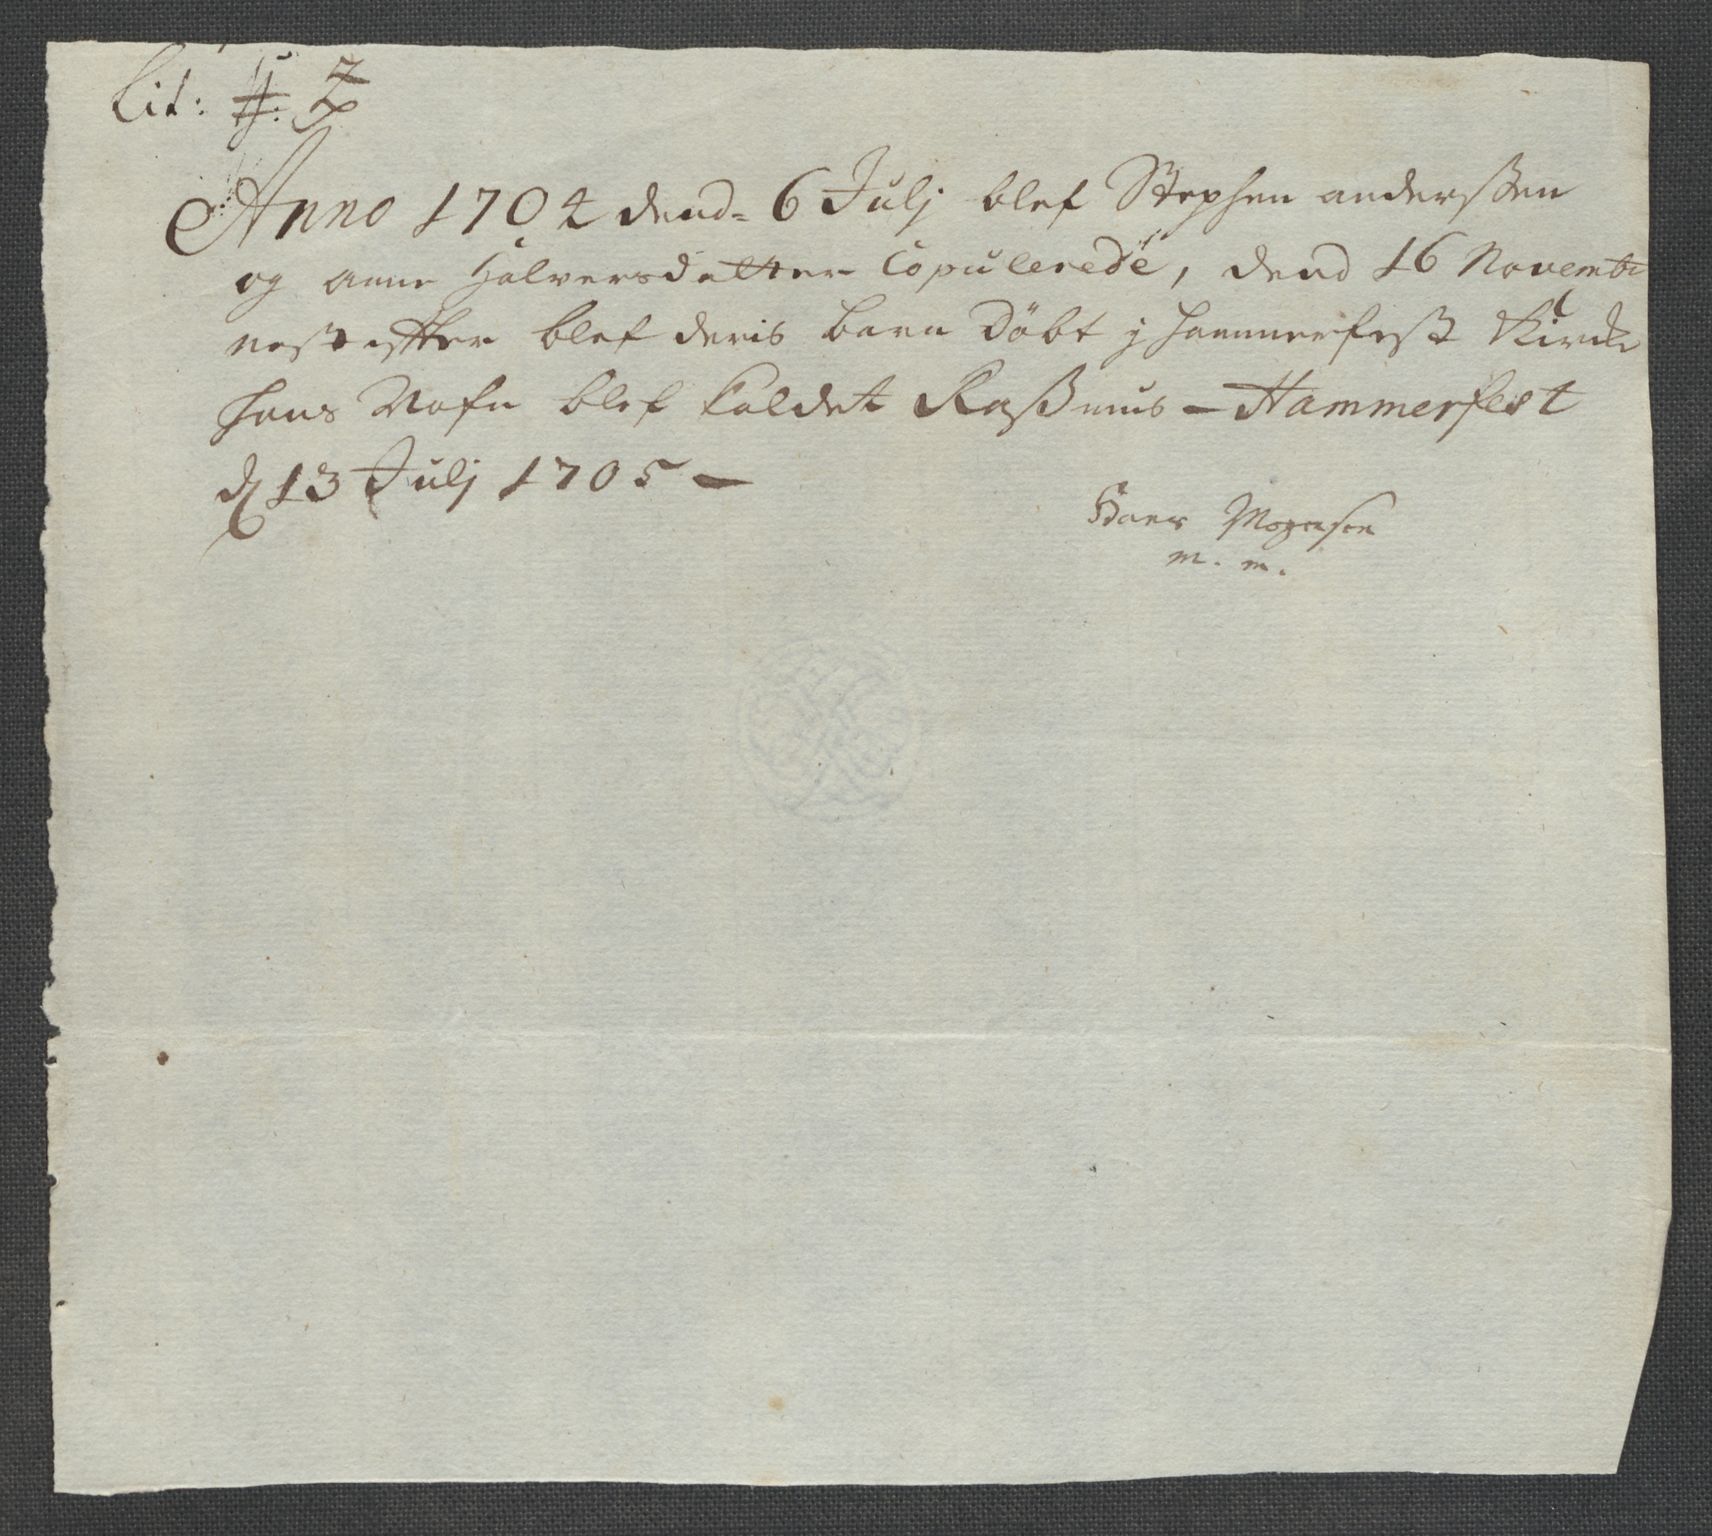 Lit:
Anno 1704 dend= 6 Julj blef Stephen anderssen
og anne Halversdatter Copulerede, dend 16 Novemb:
nest effter blef deris barn döbt j hammerfest Kircke
hans Nafn blef kaldet Rassmus - Hammerfest
d 13 Julj 1705 -
Hans Mogensen
m. m.